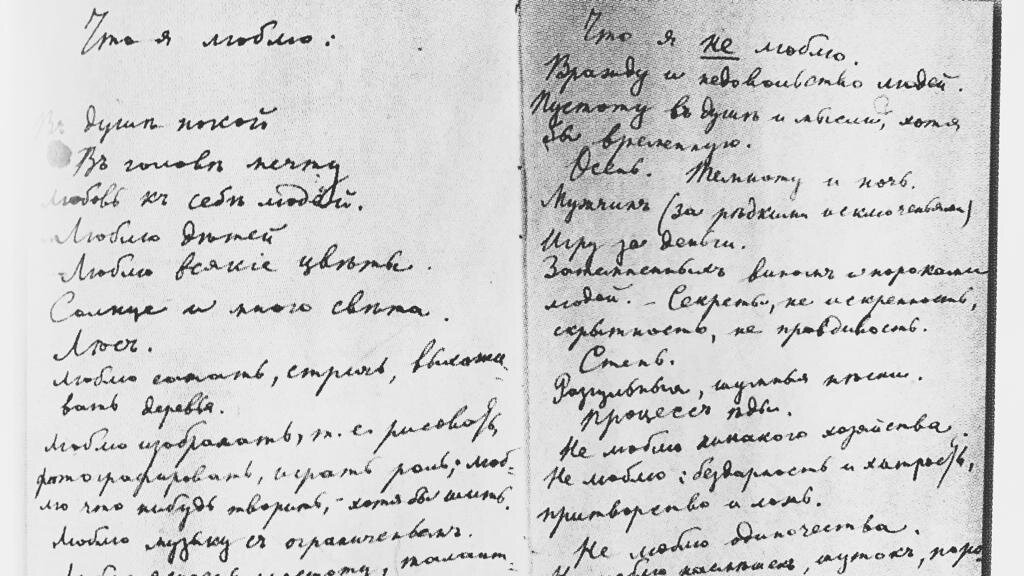 Что я люблю:
Въ душѣ покой
Въ головѣ мечту
Любовь къ себѣ людей.
Люблю дѣтей
Люблю всякіе цвѣты.
Солнце и много свѣта.
Лѣсъ.
Люблю сажать, стричь, выхажи-
вать деревья.
Люблю изображать, т. е. рисовать,
фотографировать, играть роль; люб-
лю что нибудь творить, – хотя бы шить.
Люблю музыку съ ограниченьемъ.
талант
Что я не люблю.
Вражду и недовольство людей.
Пустоту въ душѣ и мысляхъ, хотя
бы временную.
Осень. Темноту и ночь.
Мужчинъ (за рѣдкими исключеньями)
Игру за деньги.
Затемненныхъ виномъ и пороками
людей. – Секреты, не искренность,
скрытность, не правдивость.
Степь.
Разгульныя, шумныя пѣсни.
Процессъ ѣды.
Не люблю никакого хозяйства.
Не люблю: бездарность и хитрость,
притворство и ложь.
Не люблю одиночества.
люблю насмѣшекъ, шутокъ, паро